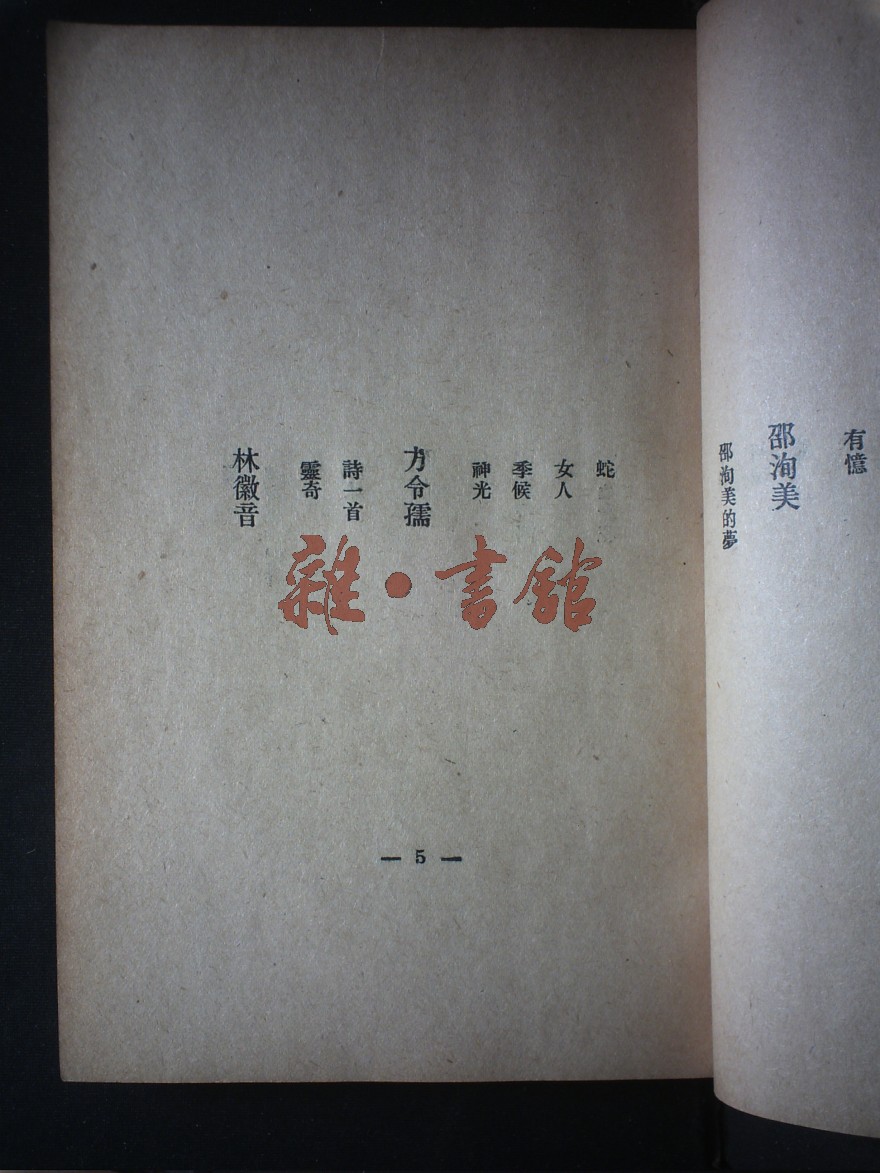 有憶
邵洵美
邵洵美的夢
蛇
女人
季候
神光
方令孺
詩一首
靈奇
林徽音
雜·書館
— 5 —